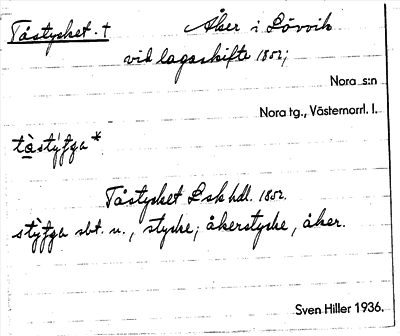 Tåstycket. † Åker i Lövvik
vid lagaskifte 1852;
Nora s:n
Nora tg., Västernorrl. l.
tàstýfga*
Tåstycket Lskhdl. 1852.
stỳfga sbt. n., stycke; åkerstycke, åker.
Sven Hiller 1936.